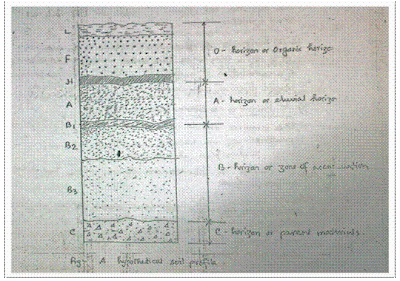 L
F
O - horizon or Organic horizo
H
A
A - horizon or eluvial horizo
B1
B2
B3
B - horizon or zone of accumulation
C
C - horizon or parent materials.
Fig - A hypothetical soil profile